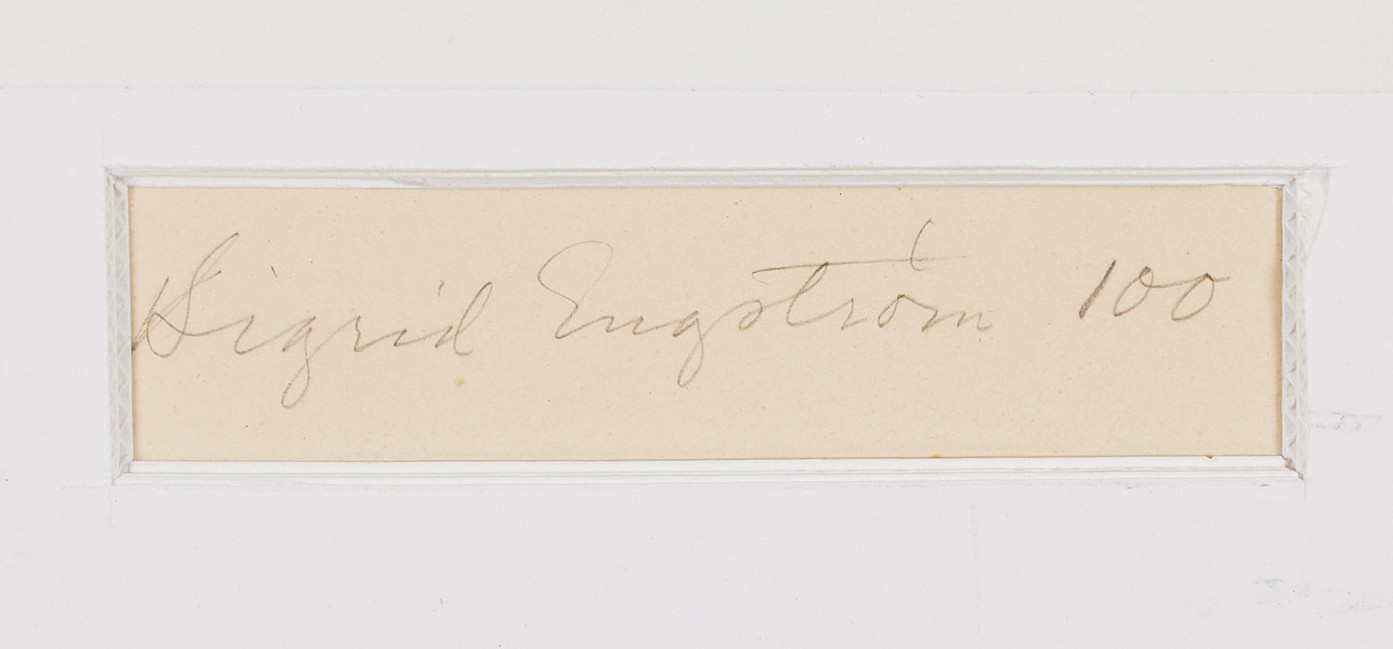 Sigrid Engström 100